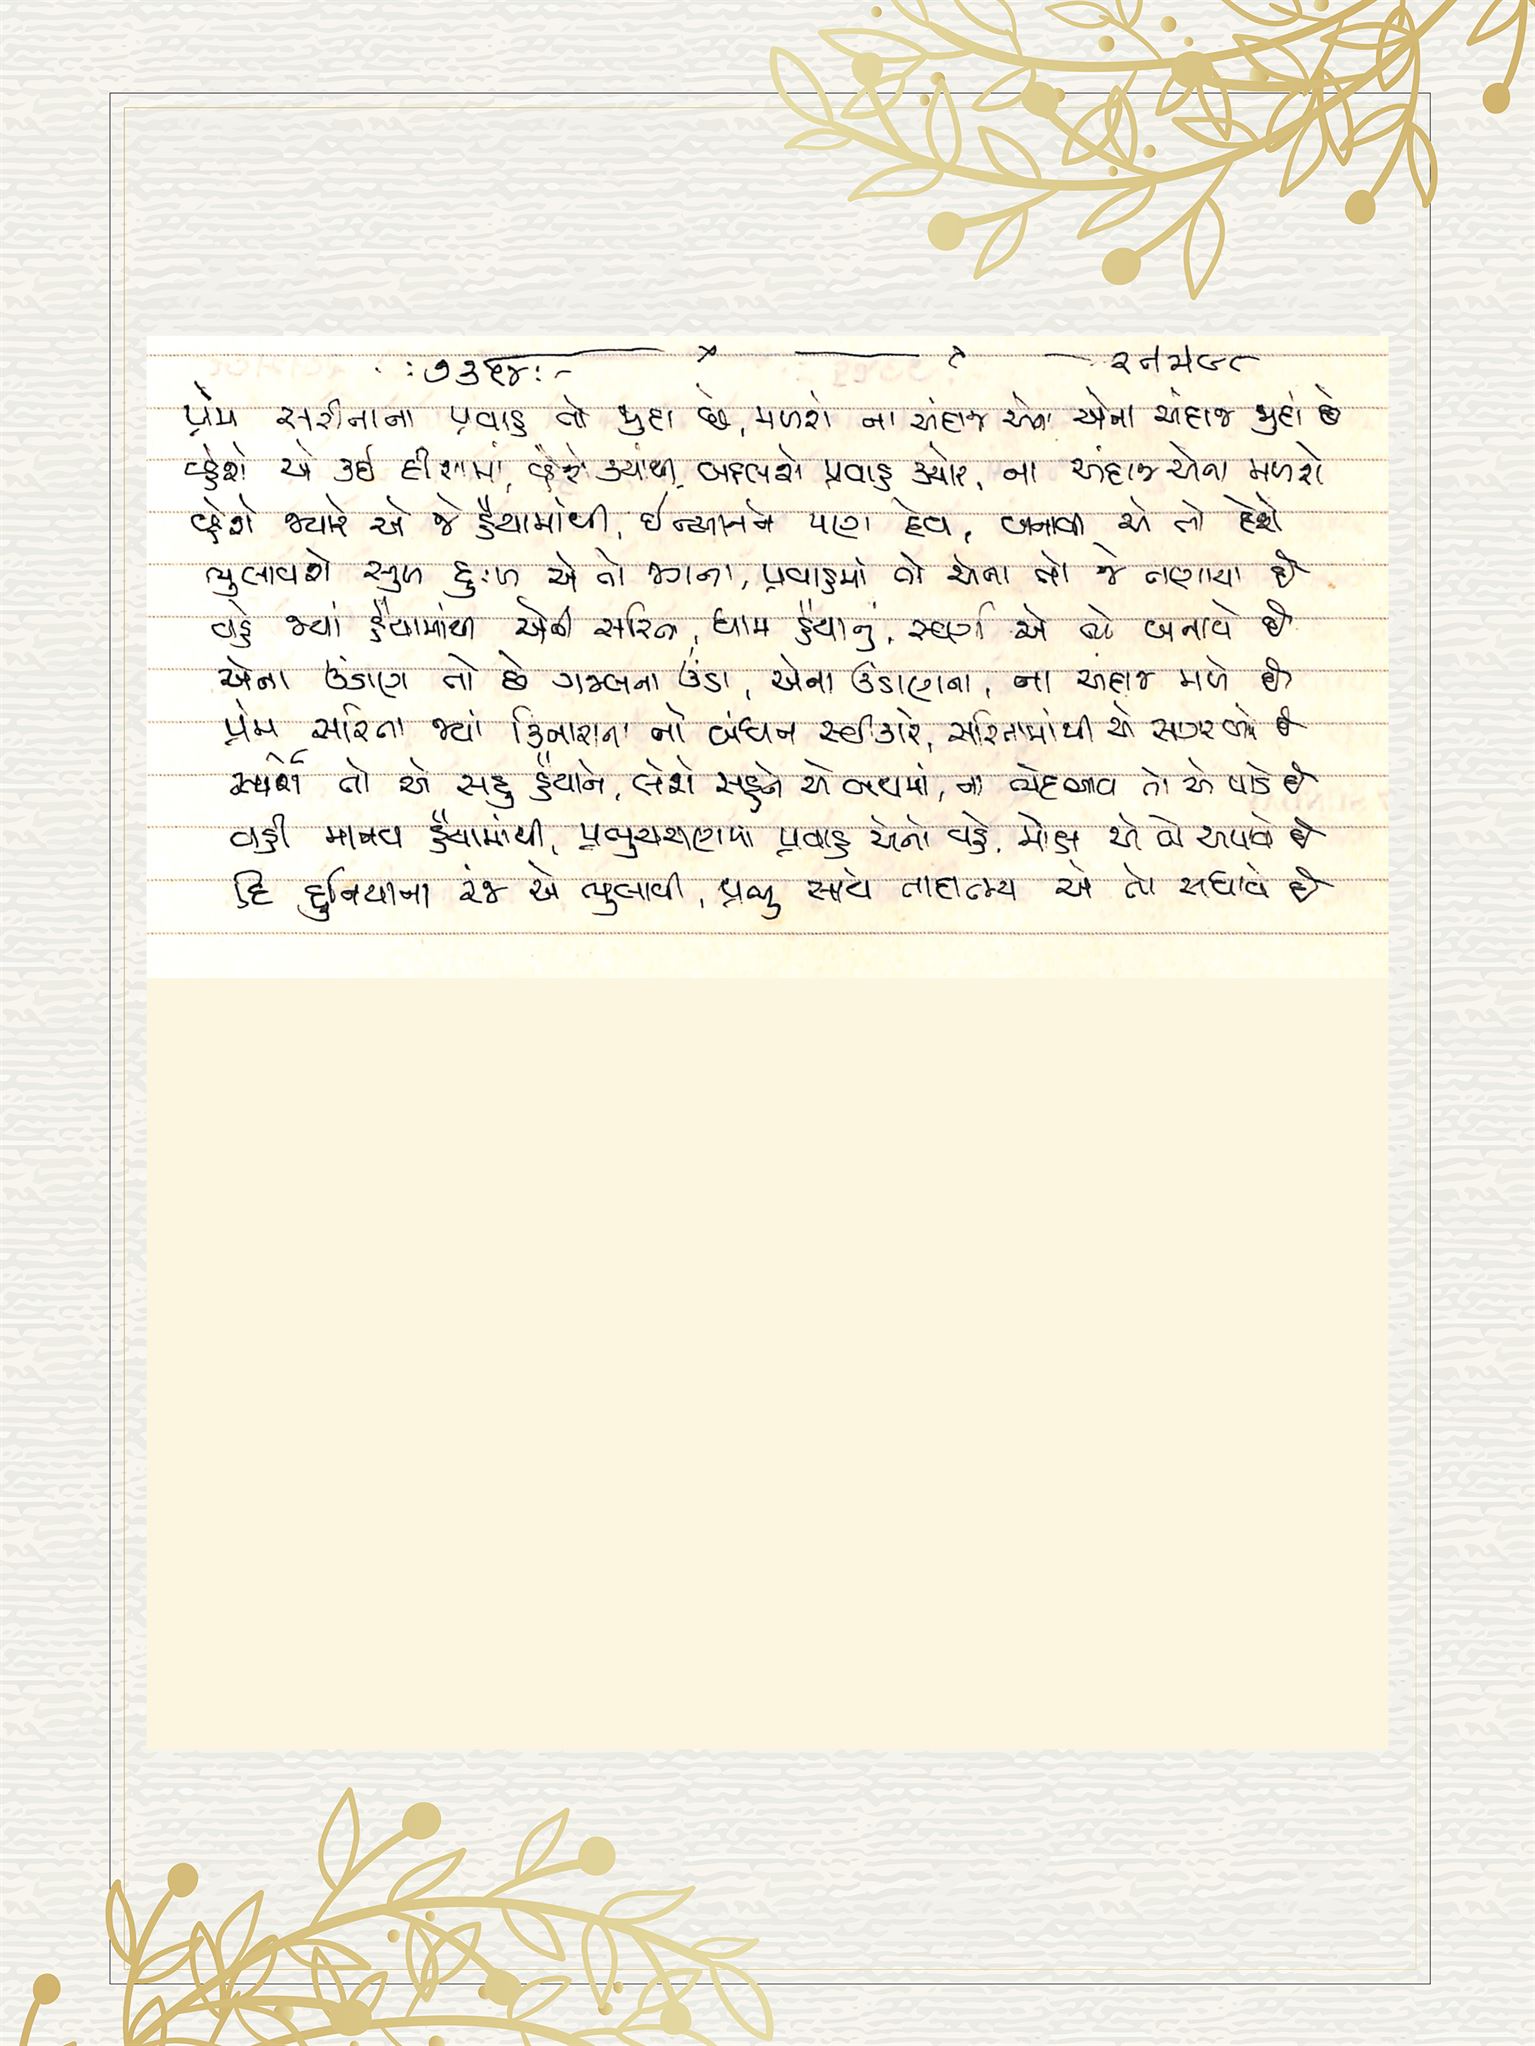 :૭૩૬૪:-
પ્રેમ સરીતાના પ્રવાહ તો જુદા છે, મળશે ના અંદાજ એના એના અંદાજ જુદાં છે
વ્હેશે એ કઈ દીશામાં, વ્હેશે ક્યાંથી, બદલશે પ્રવાહ ક્યારે, ના અંદાજ એના મળશે
વ્હેશે જ્યારે એ જે હૈયામાંથી, ઈન્સાનને પણ દેવ, બનાવી એ તો દેશે
ભુલાવશે સુખ દુઃખ એ તો જગના, પ્રવાહમાં તો એના તો જે તણાયા છે
વહે જ્યાં હૈયામાંથી એની સરિતા, ધામ હૈયાનું, સ્વર્ગ એ તો બનાવે છે
એના ઉંડાણ તો છે ગજબના ઉંડા, એના ઉંડાણના, ના અંદાજ મળે છે
પ્રેમ સરિતા જ્યાં કિનારાના નો બંધન સ્વીકારે, સરિતામાંથી એ સાગર બને છે
સ્પર્શે તો એ સહુ હૈયાને, લેશે સહુને એ બાથમાં, ના ભેદભાવ તો એ પાડે છે
વહી માનવ હૈયામાંથી, પ્રભુચરણમાં પ્રવાહ એનો વહે, મોક્ષ એ તો અપાવે છે
દિ દુનિયાના રંજ એ ભુલાવી, પ્રભુ સાથે તાદાત્મ્ય એ તો સધાવે છે